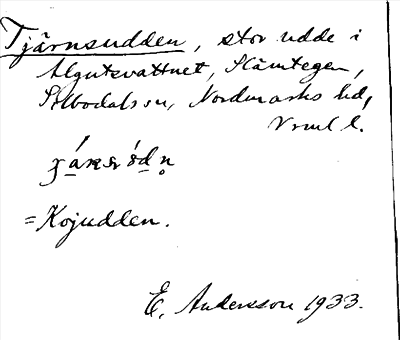 Tjärnsudden, stor udde i
Älgutsvattnet, Slämtegen,
Silbodals sn, Nordmarks hd,
Vrml l.
=Kojudden.
E. Andersson 1933.